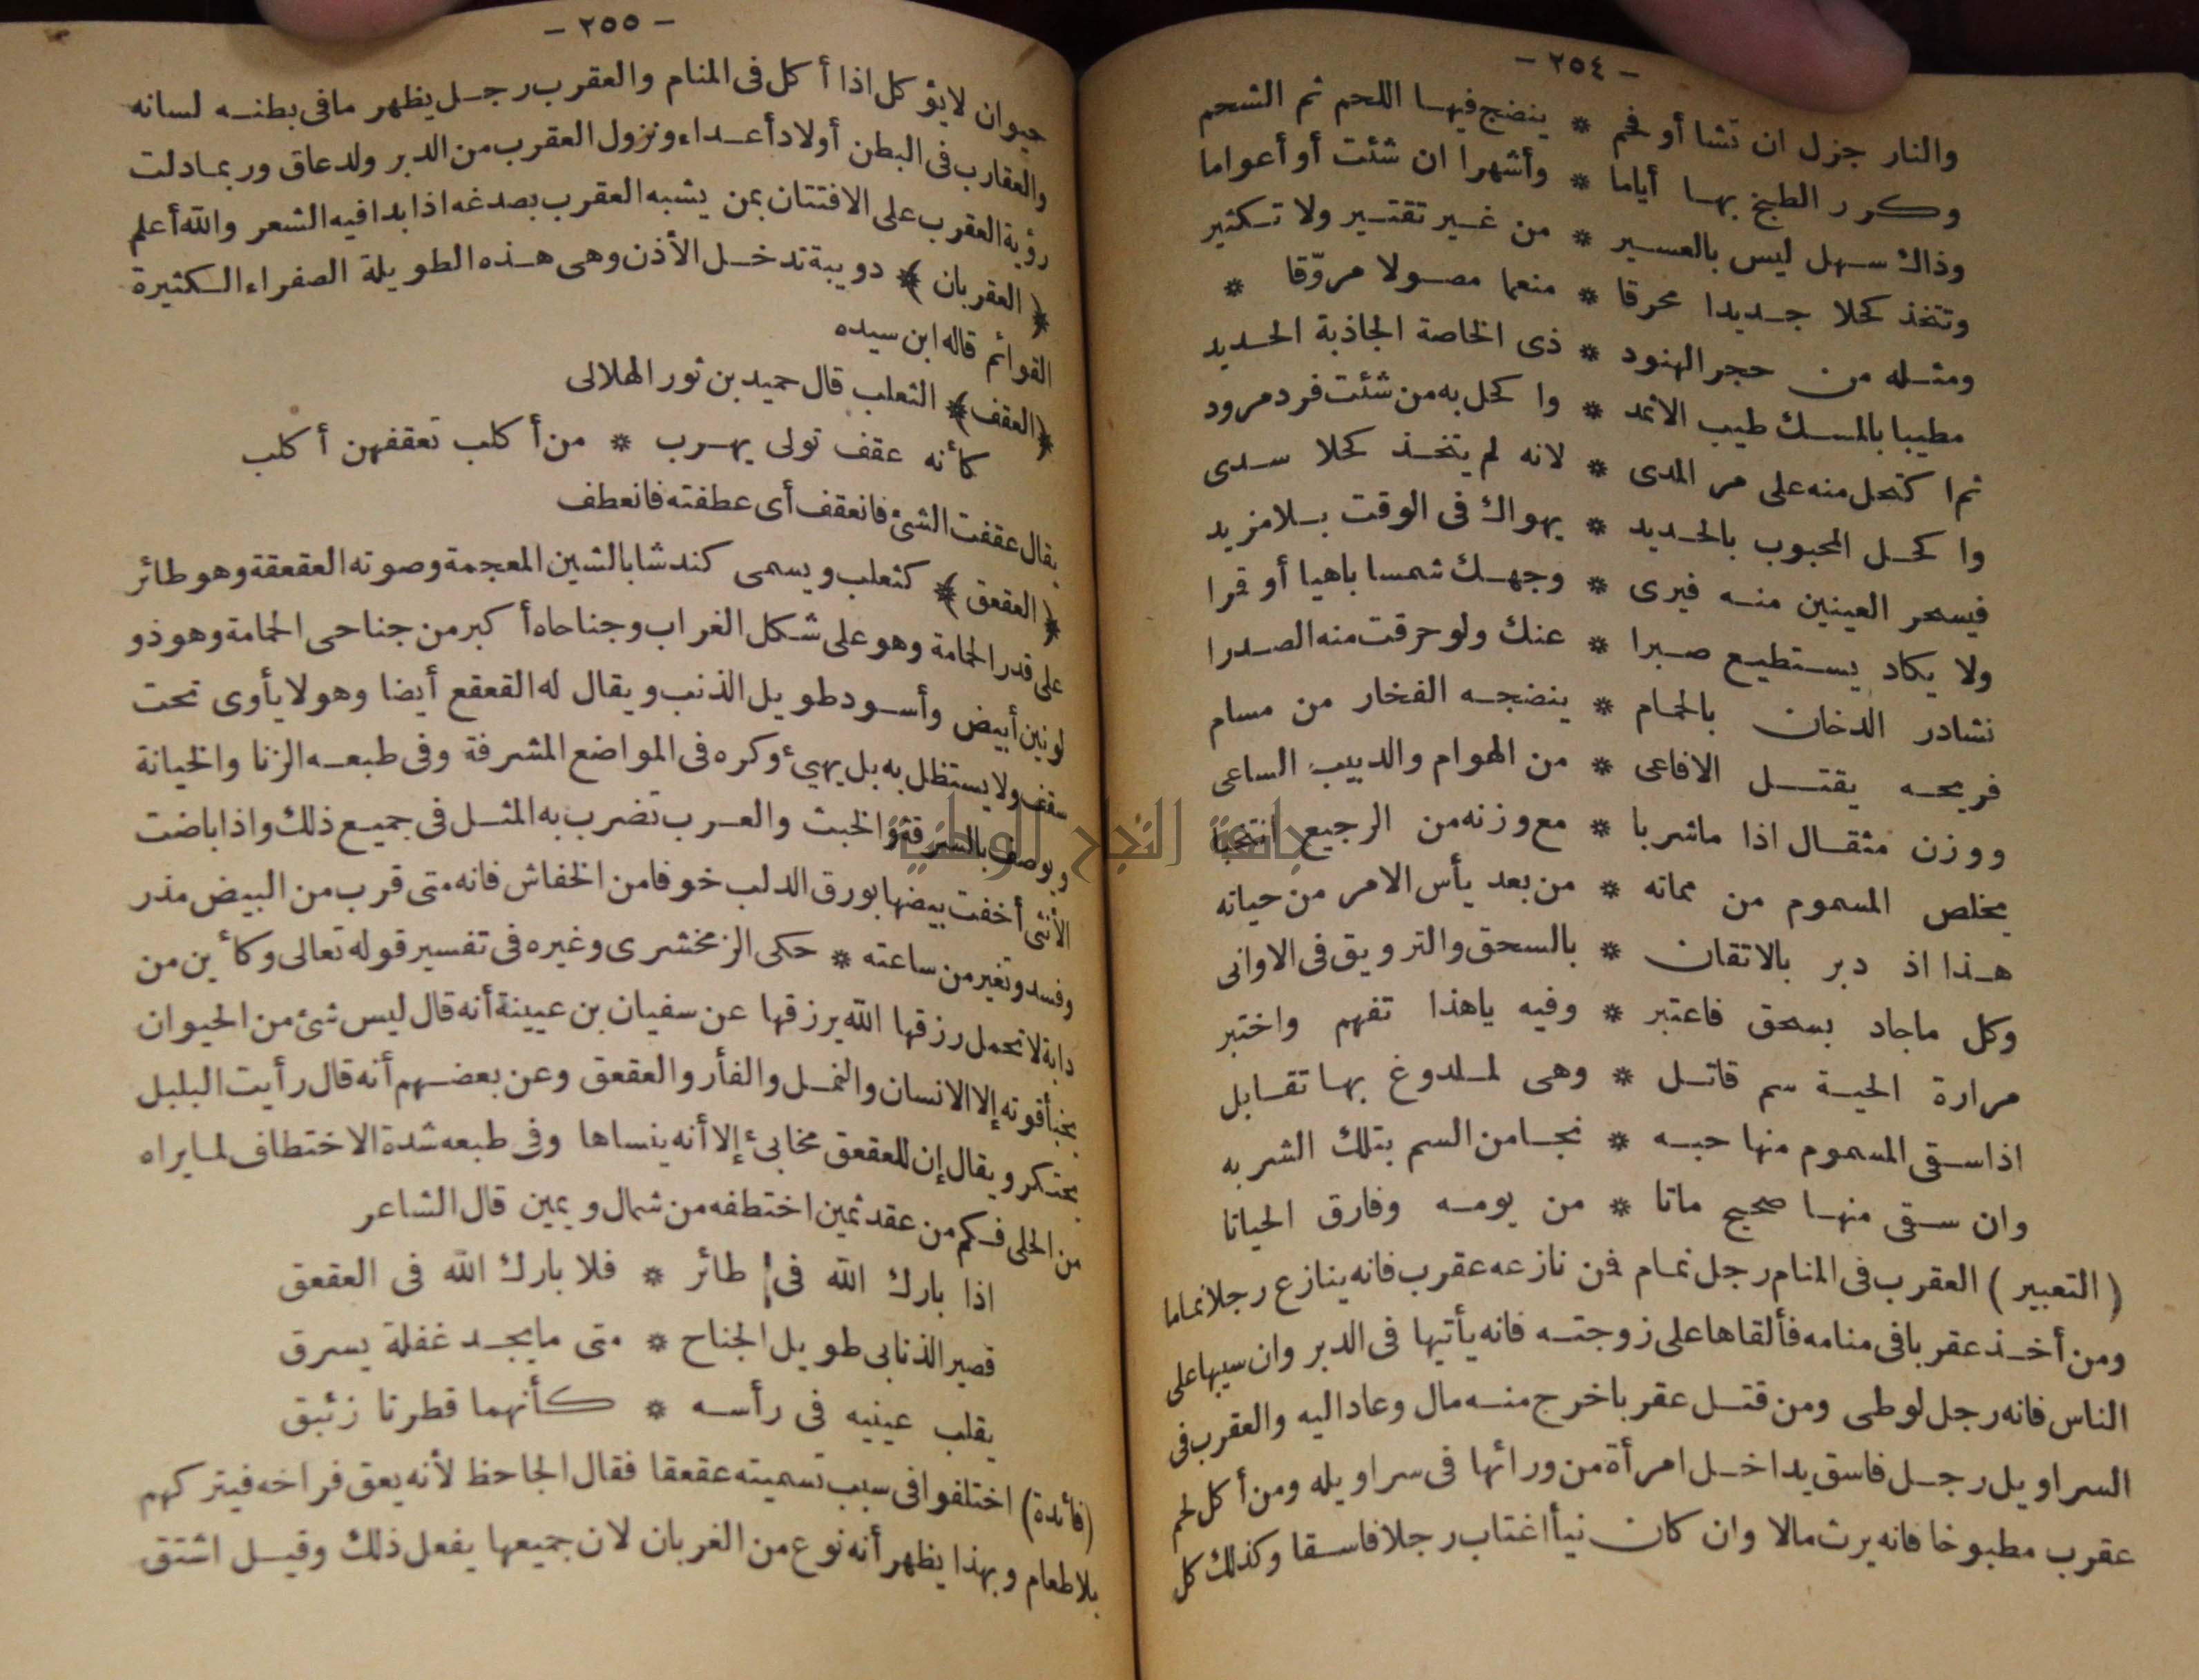 - ٢٥٤ -
والنار جزل ان تشا أو فحم * ينضج فيها اللحم ثم الشحم
وكرر الطبخ بها أياما * وأشهرا ان شئت أو أعواما
وذاك سهل ليس بالعسير * من غير تقتير ولا تكثير
وتتخذ كحلا جديدا محرقا * منعما مصولا مروّقا *
ومثله من حجر الهنود * ذى الخاصة الجاذبة الحديد
مطيبا بالمسك طيب الاثمد * واكحل به من شئت فرد مرود
ثم اكتحل منه على مر المدى * لانه لم يتخذ كحلا سدى
واكحل المحبوب بالحديد * يهواك فى الوقت بلا مزيد
فيسحر العينين منه فيرى * وجهك شمسا باهيا أو قمرا
ولا يكاد يستطيع صبرا * عنك ولو حرقت منه الصدرا
نشادر الدخان بالحمام * ينضجه الفخار من مسام
فريحه يقتل الافاعى * من الهوام والدبيب الساعى
ووزن مثقال اذا ما شربا * مع وزنه من الرجيع انتخبا
يخلص المسموم من مماته * من بعد يأس الامر من حياته
هذا اذ دبر بالاتقان * بالسحق والترويق فى الاوانى
وكل ما جاد بسحق فاعتبر * وفيه ياهذا تفهم واختبر
مرارة الحية سم قاتل * وهى لملدوغ بها تقابل
اذا سقى المسموم منها حبه * نجا من السم بتلك الشربه
وان سقى منها صحيح ماتا * من يومه وفارق الحياتا
( التعبير ) العقرب فى المنام رجل نمام فمن نازعه عقرب فانه ينازع رجلا نماما
ومن أخذ عقربا فى منامه فألقاها على زوجته فانه يأتيها فى الدبر وان سيبها على
الناس فانه رجل لوطى ومن قتل عقربا خرج منه مال وعاد اليه والعقرب فى
السراويل رجل فاسق يداخل امرأة من ورائها فى سراويله ومن أكل لحم
عقرب مطبوخا فانه يرث مالا وان كان نيأ اغتاب رجلا فاسقا وكذلك كل
- ٢٥٥ -
حيوان لايؤكل اذا أكل فى المنام والعقرب رجل يظهر مافى بطنه لسانه
والعقارب فى البطن أولاد أعداء ونزول العقرب من الدبر ولد عاق وربما دلت
رؤية العقرب على الافتتان بمن يشبه العقرب بصدغه اذا بدا فيه الشعر والله أعلم
﴿ العقربان ﴾ دويبة تدخل الأذن وهى هذه الطويلة الصفراء الكثيرة
القوائم قاله ابن سيده
﴿ العقف ﴾ الثعلب قال حميد بن ثور الهلالى
كأنه عقف تولى يهرب * من أكلب تعقفهن أكلب
يقال عقفت الشئ فانعقف أى عطفته فانعطف
﴿ العقعق ﴾ كثعلب ويسمى كندشا بالشين المعجمة وصوته العقعقة وهو طائر
على قدر الحمامة وهو على شكل الغراب وجناحاه أكبر من جناحى الحمامة وهو ذو
لونين أبيض وأسود طويل الذنب ويقال له القعقع أيضا وهو لا يأوى تحت
سقف ولا يستظل به بل يهيئ وكره فى المواضع المشرفة وفى طبعه الزنا والخيانة
ويوصف بالسرقة والخبث والعرب تضرب به المثل فى جميع ذلك واذا باضت
الأنثى أخفت بيضها بورق الدلب خوفا من الخفاش فانه متى قرب من البيض مذر
وفسد وتغير من ساعته * حكى الزمخشرى وغيره فى تفسير قوله تعالى وكأين من
دابة لا تحمل رزقها الله يرزقها عن سفيان بن عيينة أنه قال ليس شئ من الحيوان
يخبأ قوته إلا الانسان والنمل والفأر والعقعق وعن بعضهم أنه قال رأيت البلبل
يحتكر ويقال إن للعقعق مخابئ إلا أنه ينساها وفى طبعه شدة الاختطاف لما يراه
من الحلى فكم من عقد ثمين اختطفه من شمال ويمين قال الشاعر
اذا بارك الله فى طائر * فلا بارك الله فى العقعق
قصير الذنابى طويل الجناح * متى ما يجد غفلة يسرق
يقلب عينيه فى رأسه * كأنهما قطرتا زئبق
(فائدة) اختلفوا فى سبب تسميته عقعقا فقال الجاحظ لأنه يعق فراخه فيتركهم
بلا طعام وبهذا يظهر أنه نوع من الغربان لان جميعها يفعل ذلك وقيل اشتق
جامعة النجاح الوطنية